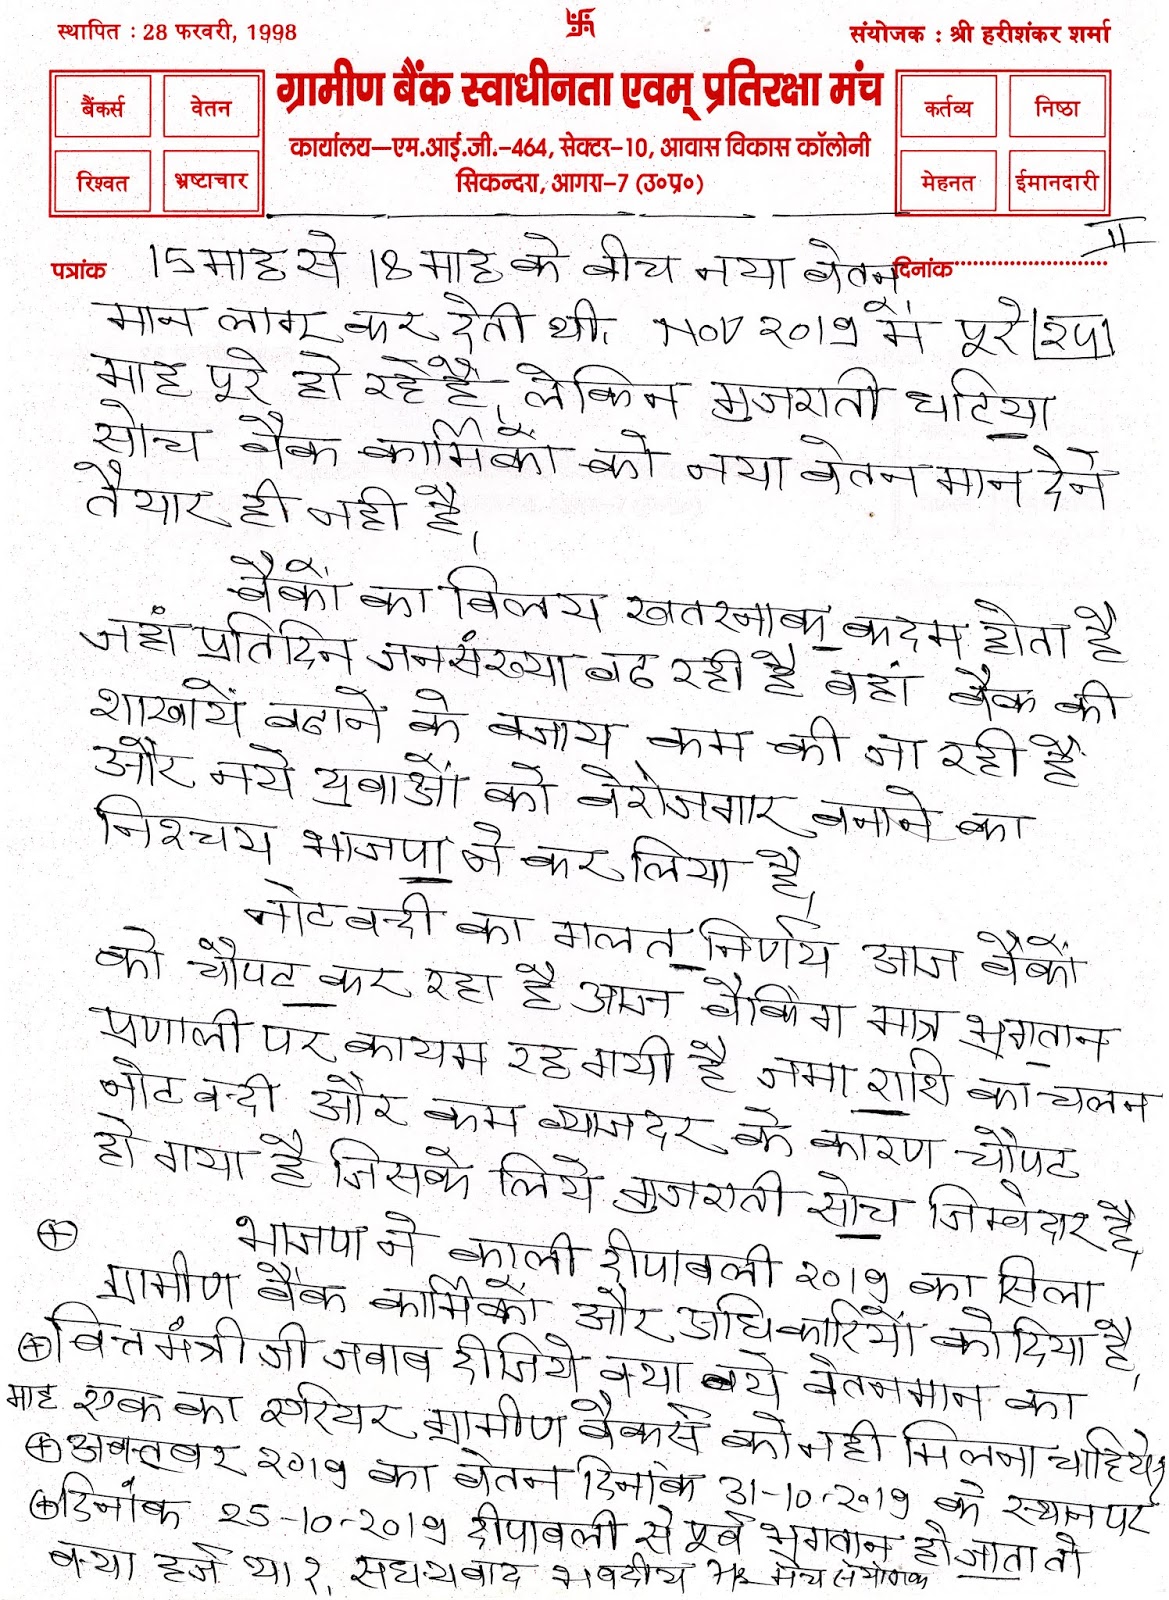 स्थापित : 28 फरवरी, 1998
संयोजक : श्री हरीशंकर शर्मा
बैंकर्स वेतन
रिश्वत भ्रष्टाचार
ग्रामीण बैंक स्वाधीनता एवम् प्रतिरक्षा मंच
कार्यालय–एम.आई.जी.–464, सेक्टर–10, आवास विकास कॉलोनी
सिकन्दरा, आगरा–7 (उ०प्र०)
कर्तव्य निष्ठा
मेहनत ईमानदारी
II
पत्रांक
दिनांक
15 माह से 18 माह के बीच नया वेतन
मान लागू कर देती थी, NOV 2019 में पूरे
माह पूरे हो रहे हैं, लेकिन गुजराती घटिया
सोच बैंक कार्मिकों को नया वेतन मान देने
तैयार ही नही है,
बैकों का विलय खतरनाक कदम होता है
जहां प्रतिदिन जनसंख्या बढ रही है वहां बैंक की
शाखायें बढाने के बजाय कम की जा रही हैं
और नये युवाओं को बेरोजगार बनाने का
निश्चय भाजपा ने कर लिया है,
नोटबन्दी का गलत निर्णय आज बैंकों
को चौपट कर रहा है आज बैकिंग मात्र भुगतान
प्रणाली पर कायम रह गयी है जमा राशि का चलन
नोटबन्दी और कम ब्याज दर के कारण चौपट
हो गया है जिसके लिये गुजराती सोच जिम्वेदार है,
भाजपा ने काली दीपावली 2019 का सिला
ग्रामीण बैंक कार्मिकों और अधिकारियों को दिया है,
वित्त मंत्री जी जवाब दीजिये क्या नये वेतनमान का
माह एक का एरियर ग्रामीण बैंकर्स को नही मिलना चाहिये,
अक्तूबर 2019 का वेतन दिनांक 31-10-2019 के स्थान पर
दिनांक 25-10-2019 दीपावली से पूर्व भुगतान हो जाता तो
क्या हर्ज था ?, सधन्यवाद भवदीय मंच संयोजक